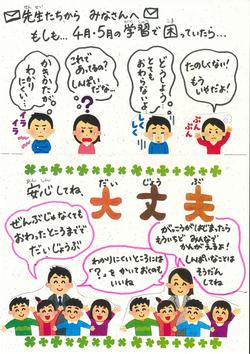 先生たちから みなさんへ
もしも…4月・5月の学習で困っていたら…
かきかたが
わかりにくい…
イライラ
これで
あってるの?
しんぱいだな…
?
どうしよう…
とても
おわらないよ…
しくしく
たのしくない!
もう
いやだよ!
ぷんぷん
安心してね、大丈夫
あんしん
だいじょうぶ
ぜんぶじゃなくても
おわったところまで
でだいじょうぶ
わかりにくいところには
「?」をかいておくのも
いいね
がっこうがはじまったら
もういちど みんなで
かんがえるよ!
しんぱいなことは
そうだん
してね